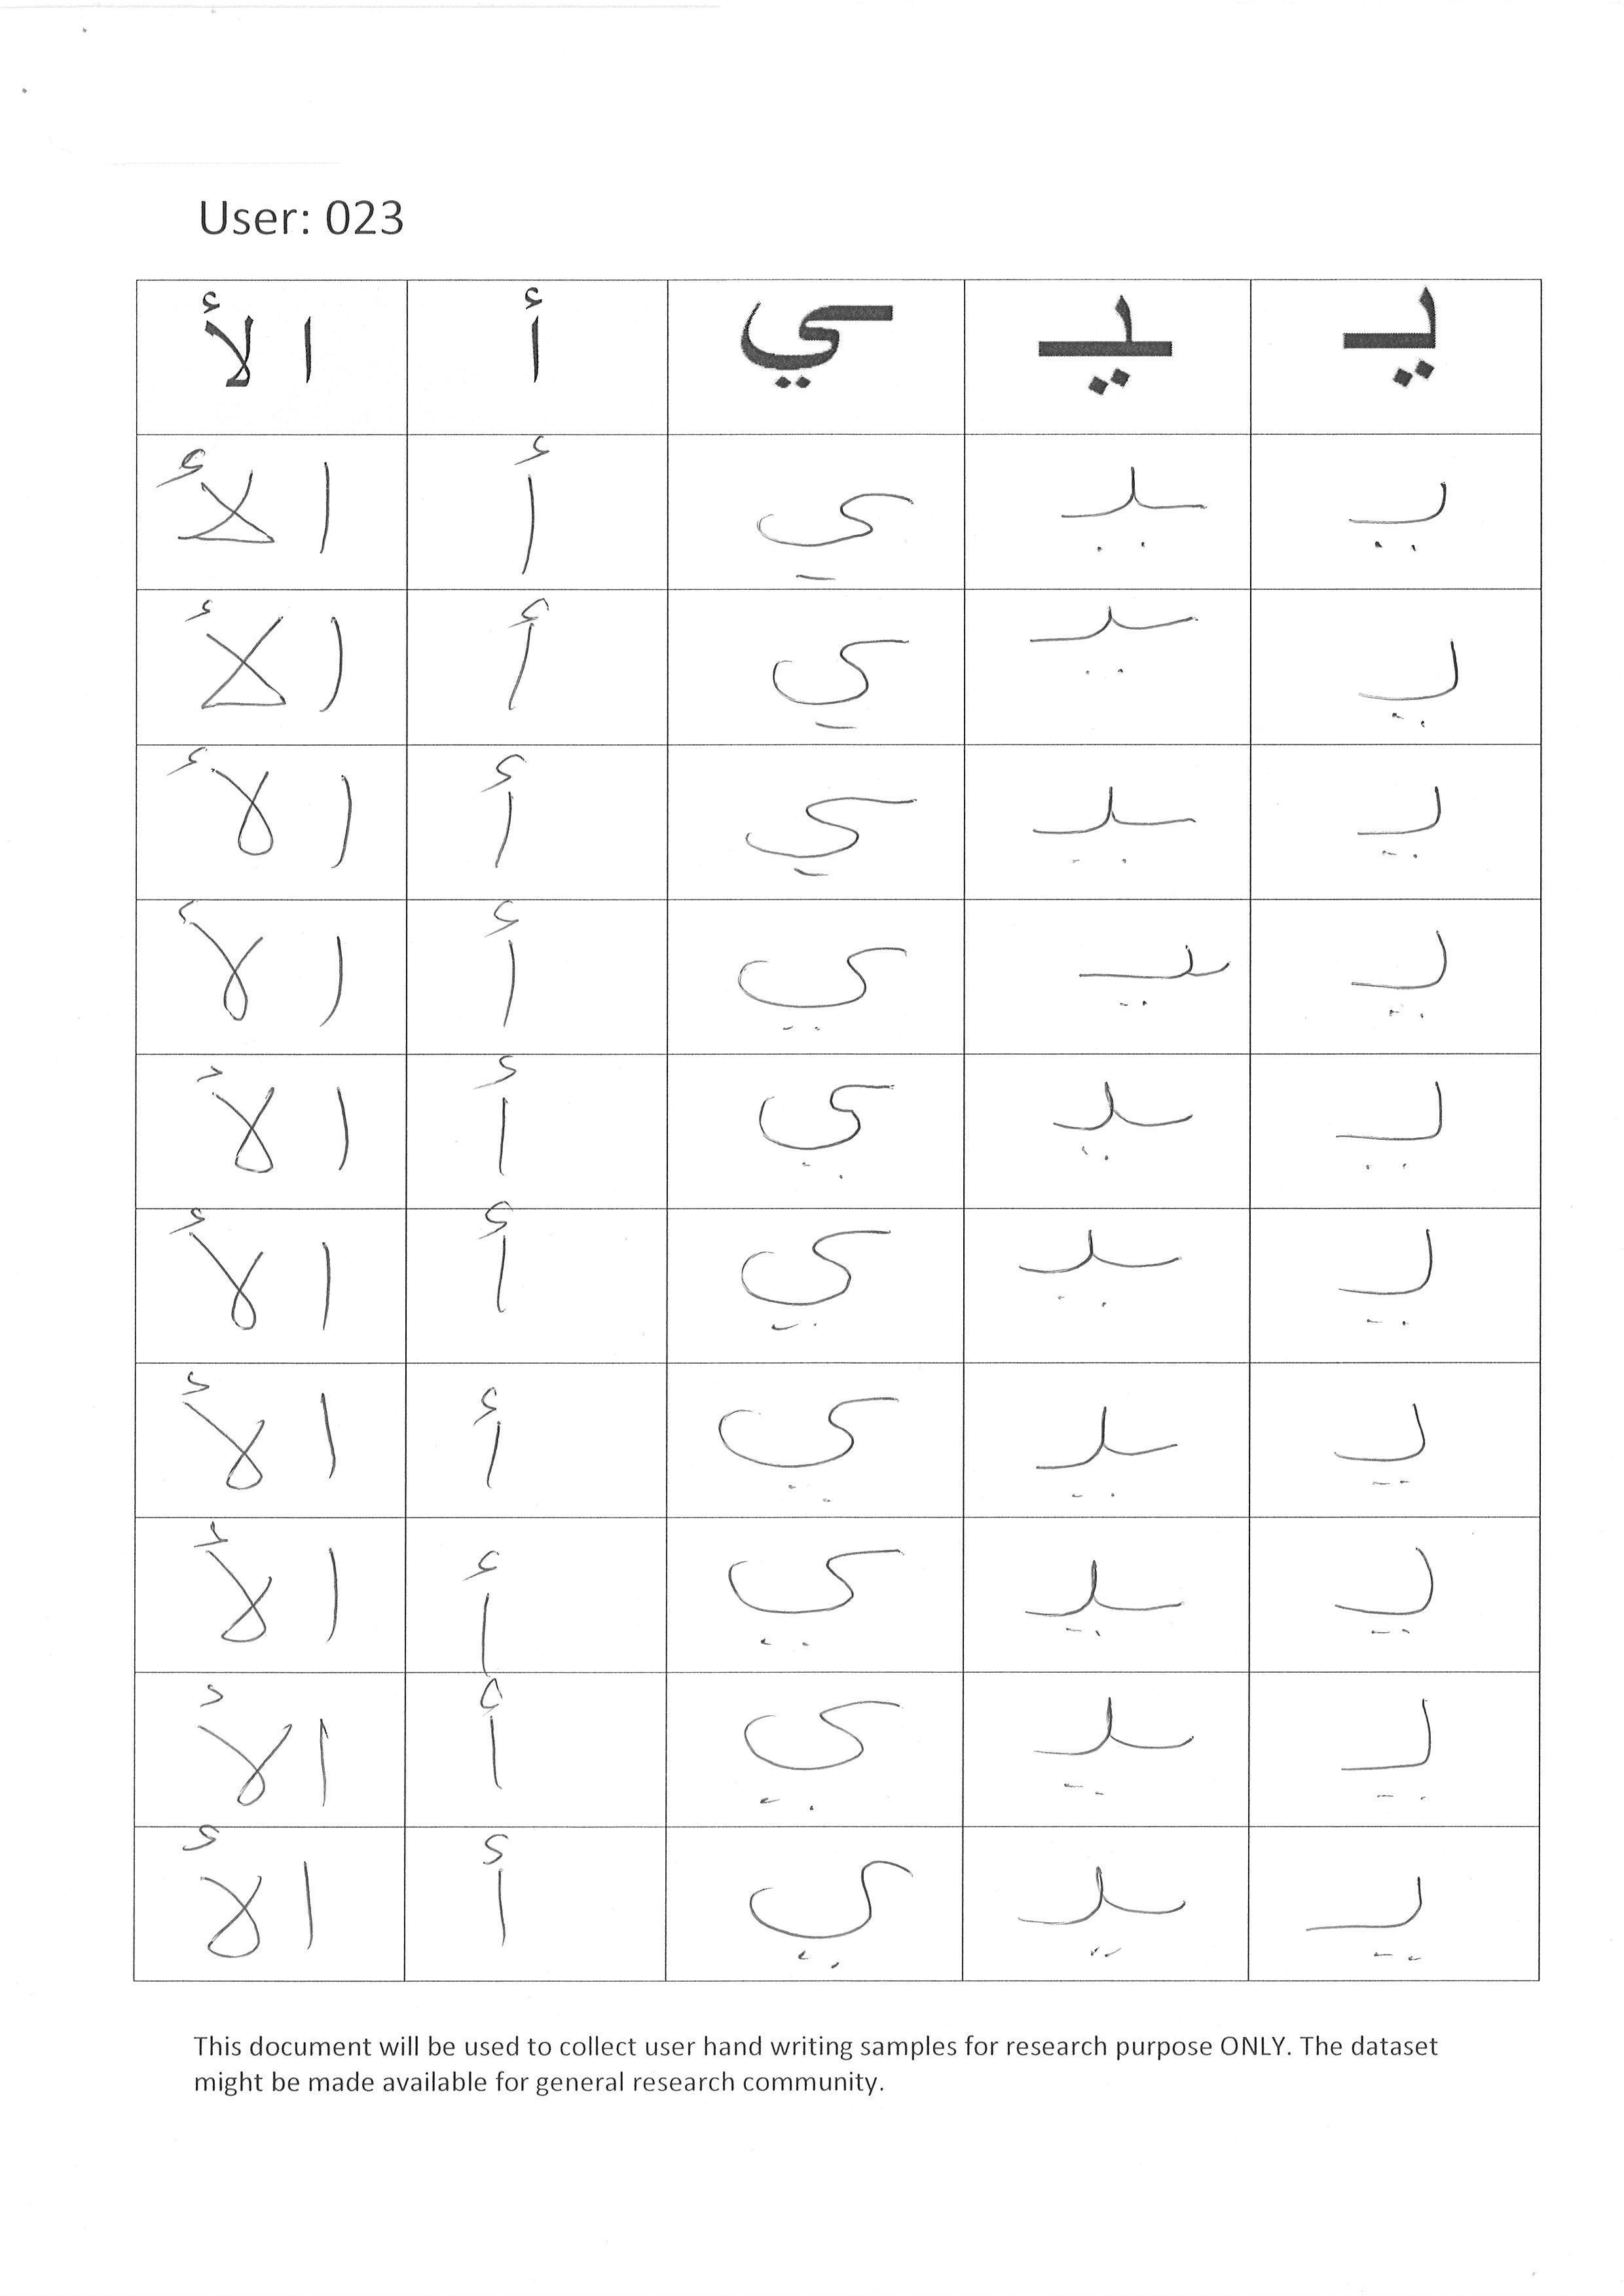 User: 023
يـ ـيـ ـي أ ا لأ
يـ ـيـ ـي أ ا لأ
يـ ـيـ ـي أ ا لأ
يـ ـيـ ـي أ ا لأ
يـ ـيـ ـي أ ا لأ
يـ ـيـ ـي أ ا لأ
يـ ـيـ ـي أ ا لأ
يـ ـيـ ـي أ ا لأ
يـ ـيـ ـي أ ا لأ
يـ ـيـ ـي أ ا لأ
يـ ـيـ ـي أ ا لأ
This document will be used to collect user hand writing samples for research purpose ONLY. The dataset
might be made available for general research community.